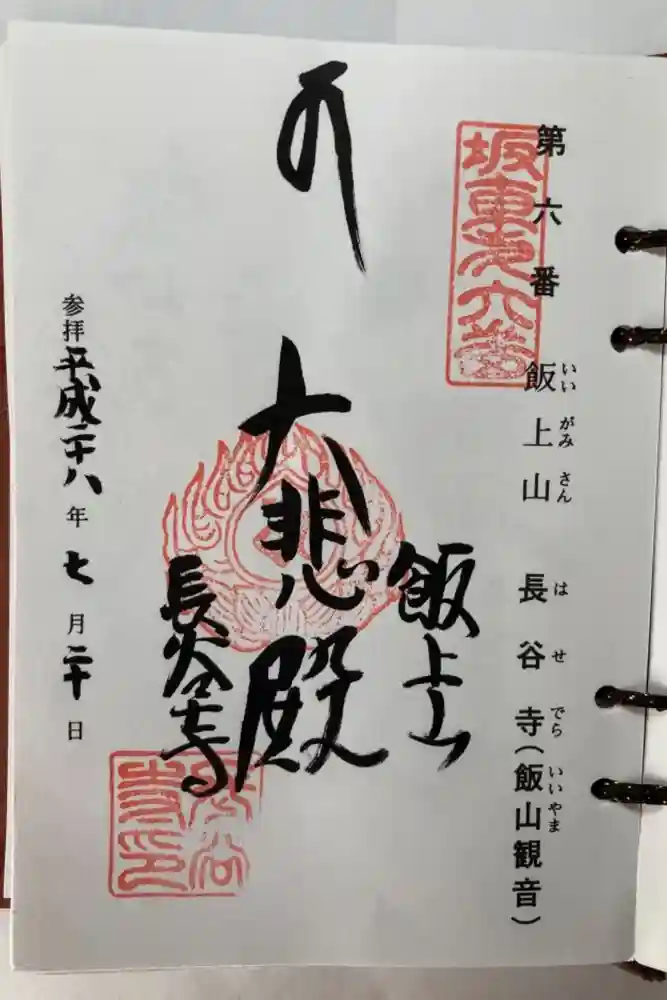 第六番 飯上山 長谷寺(飯山観音)
いいがみさん はせでら いいやま
坂東第六番
飯上山
大悲殿
長谷寺
長谷寺印
参拝平成二十八年七月二十日